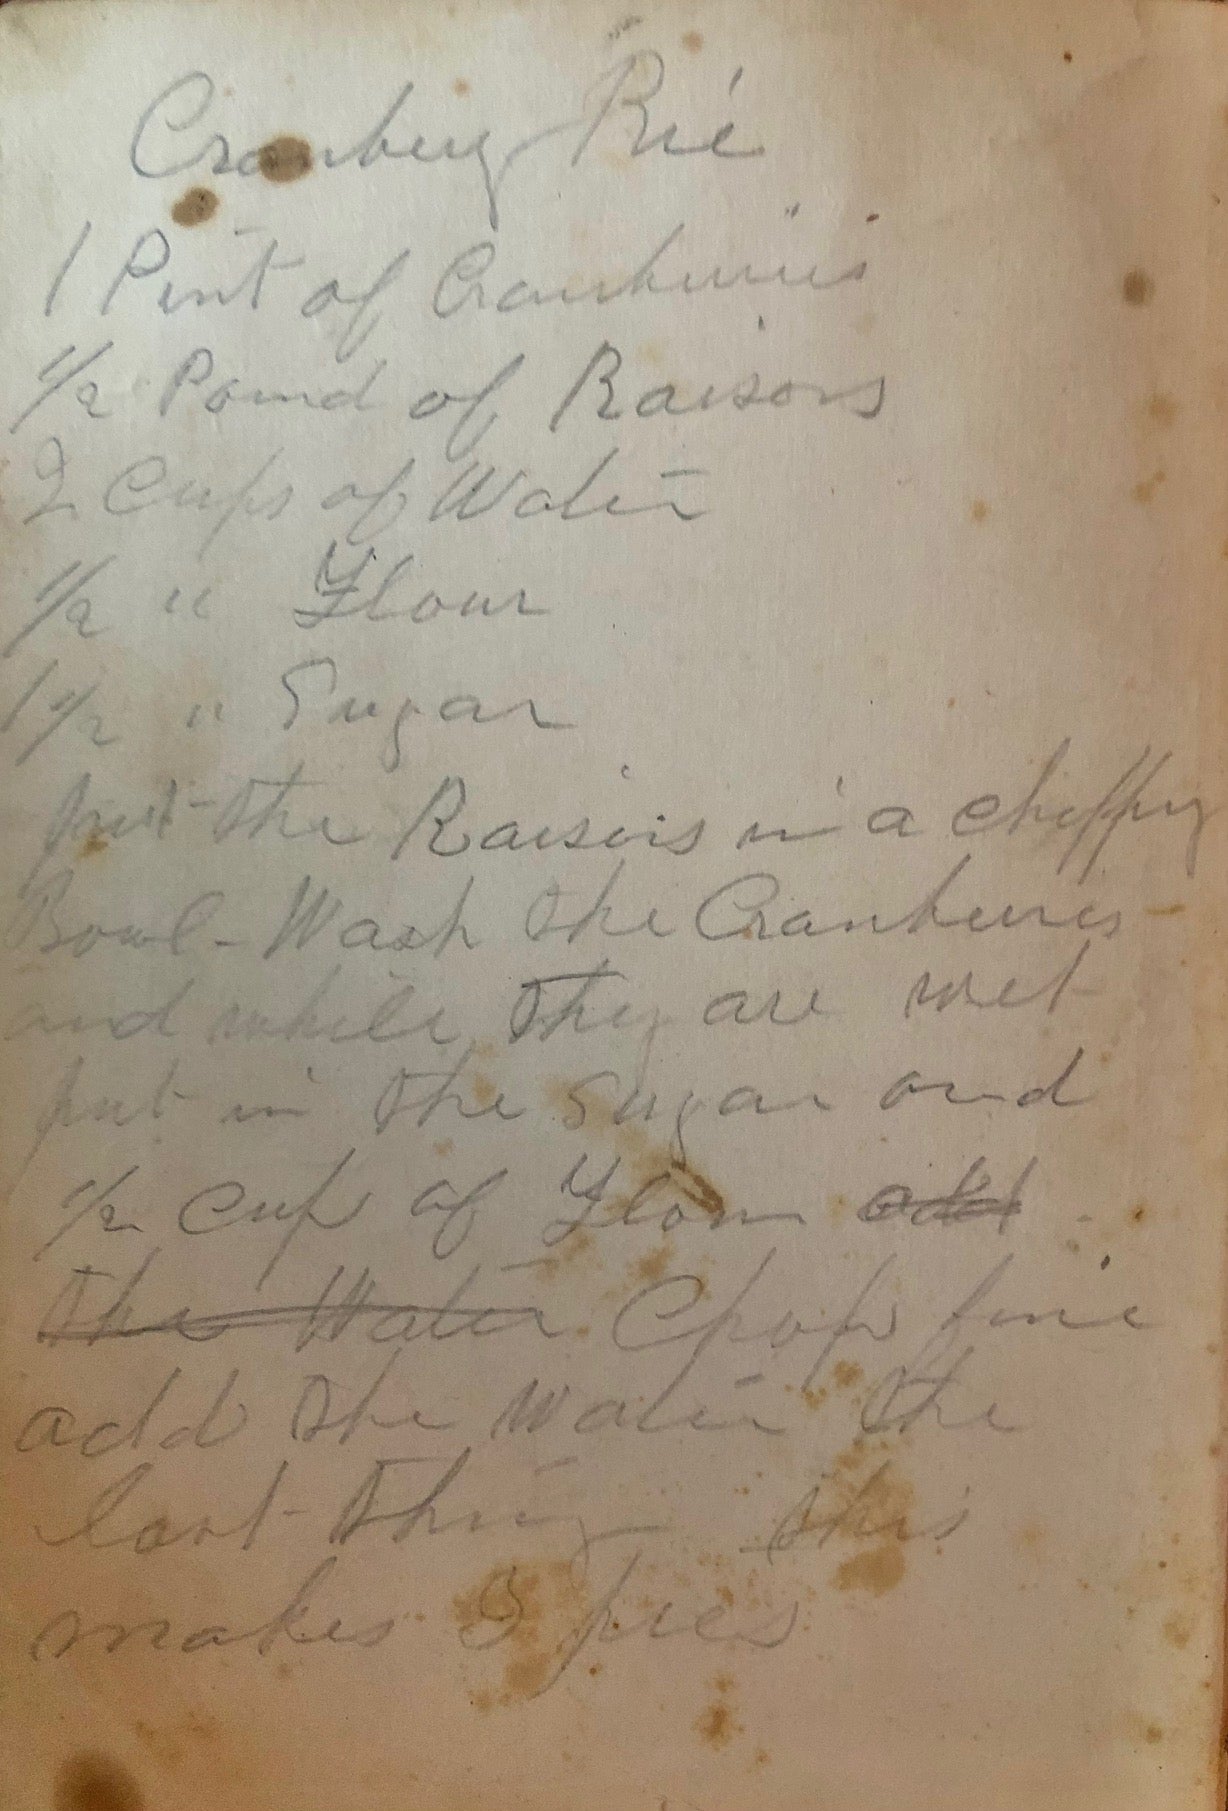 Cranbery Pie
1 Pint of Cranberries
1/2 Pound of Raisons
2 Cups of Water
1/2 " Flour
1 1/2 " Sugar
put the Raisons in a choppy
Bowl - Wash the Cranberries
and while they are wet
put in the Sugar and
1/2 cup of Flour add
the Water Chop fine
add the Water the
last thing this
makes 3 pies